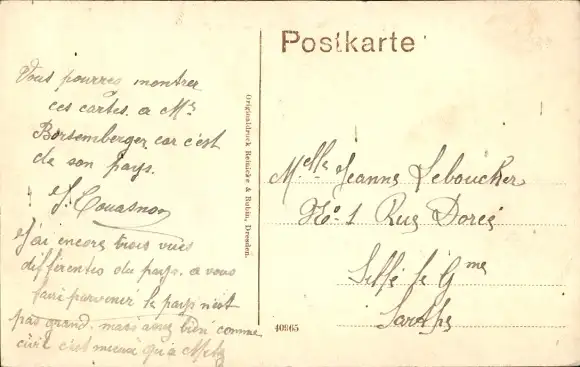 Postkarte
Vous pourrez montrer
ces cartes. a Mr
Borsemberger car c'est
de son pays.
J. Couasnon
J'ai encore trois vues
differentes du pays. a vous
faire parvenir le pays n'est
pas grand. mais assez bien comme
c'est mieux qu'a Metz
Originaldruck Reinicke & Rubin, Dresden.
40965
Melle Jeanne Leboucher
No. 1 Rue Dorée
Sillé le Gme
Sarthe